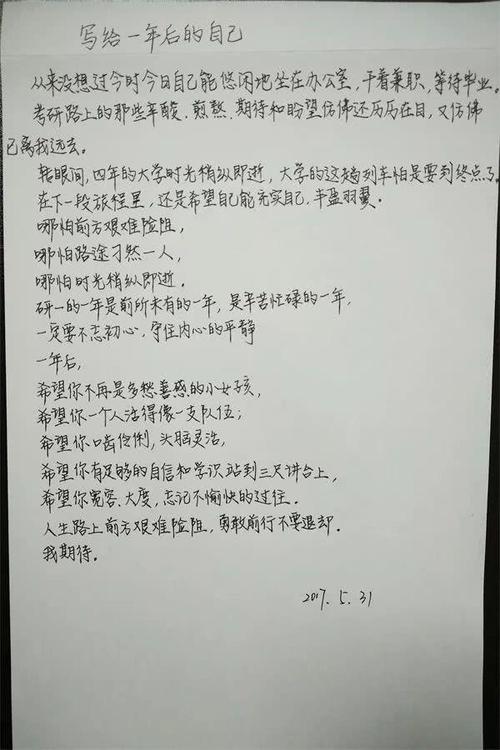 写给一年后的自己
从来没想过今时今日自己能悠闲地坐在办公室，干着兼职，等待毕业。
考研路上的那些辛酸、煎熬、期待和盼望仿佛还历历在目，又仿佛
已离我远去。
转眼间，四年的大学时光稍纵即逝，大学的这趟列车怕是要到终点了。
在下一段旅程里，还是希望自己能充实自己，丰盈羽翼。
哪怕前方艰难险阻，
哪怕路途孑然一人，
哪怕时光稍纵即逝。
研一的一年是前所未有的一年，是辛苦忙碌的一年，
一定要不忘初心，守住内心的平静
一年后，
希望你不再是多愁善感的小女孩，
希望你一个人活得像一支队伍；
希望你口齿伶俐，头脑灵活，
希望你有足够的自信和学识站到三尺讲台上，
希望你宽容、大度，忘记不愉快的过往。
人生路上前方艰难险阻，勇敢前行不要退却．
我期待．
2017. 5. 31